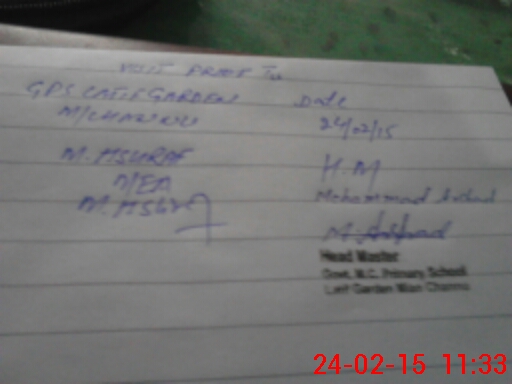 VISIT PROOF To
GPS LATIF GARDEN
M/CHANNU
Date
24/02/15
M. ASHRAF
MEA
H.M
Mohammad Arshad
M. Arshad
Head Master
Govt. M.C. Primary School
Latif Garden Mian Channu
24-02-15 11:33